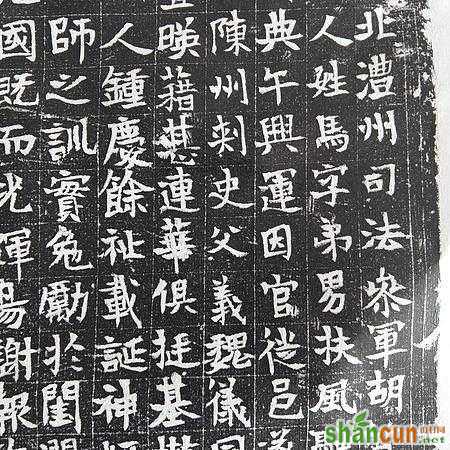 北澧州司法叅軍胡
人姓馬字弟男扶風
典午興運因官徙邑
陳州刺史父義魏儀同
暎籍甚連華俱挺基
人鍾慶餘祉載誕神
師之訓實勵於閨
國既而光易謝報
shancun
.net